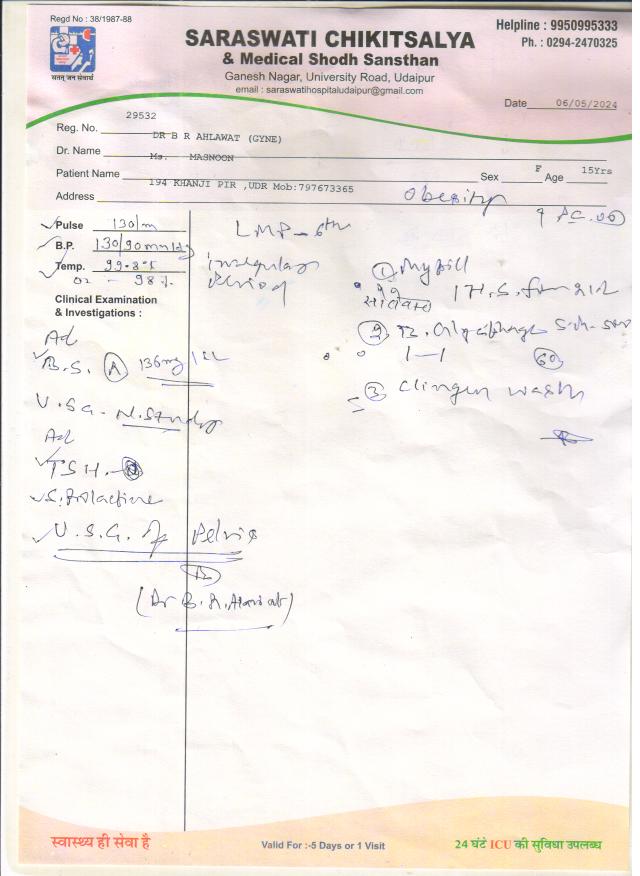 Regd No : 38/1987-88
सतत् जन सेवार्थ
SARASWATI CHIKITSALYA
& Medical Shodh Sansthan
Ganesh Nagar, University Road, Udaipur
email : saraswatihospitaludaipur@gmail.com
Helpline : 9950995333
Ph. : 0294-2470325
Date 06/05/2024
Reg. No. 29532
Dr. Name DR B R AHLAWAT (GYNE)
Patient Name Ms. MASNOON
Sex F Age 15Yrs
Address 194 KHANJI PIR ,UDR Mob:797673365
Obesity
Pulse 130/m
B.P. 130/90mmHg
Temp. 99.8°F
O2 - 98%
LMP - 6th
irregular
Period
Clinical Examination
& Investigations :
Ad
B.S. (R) 136mg/
U.S.G. - N. Study
Ad
TSH.
S. Prolactine
U.S.G. of Pelvis
(Dr B.R. Ahlawat)
① Mypill
1 H.S. from
②
1-1 60
③ Clingen wash
स्वास्थ्य ही सेवा है
Valid For :-5 Days or 1 Visit
24 घंटे ICU की सुविधा उपलब्ध